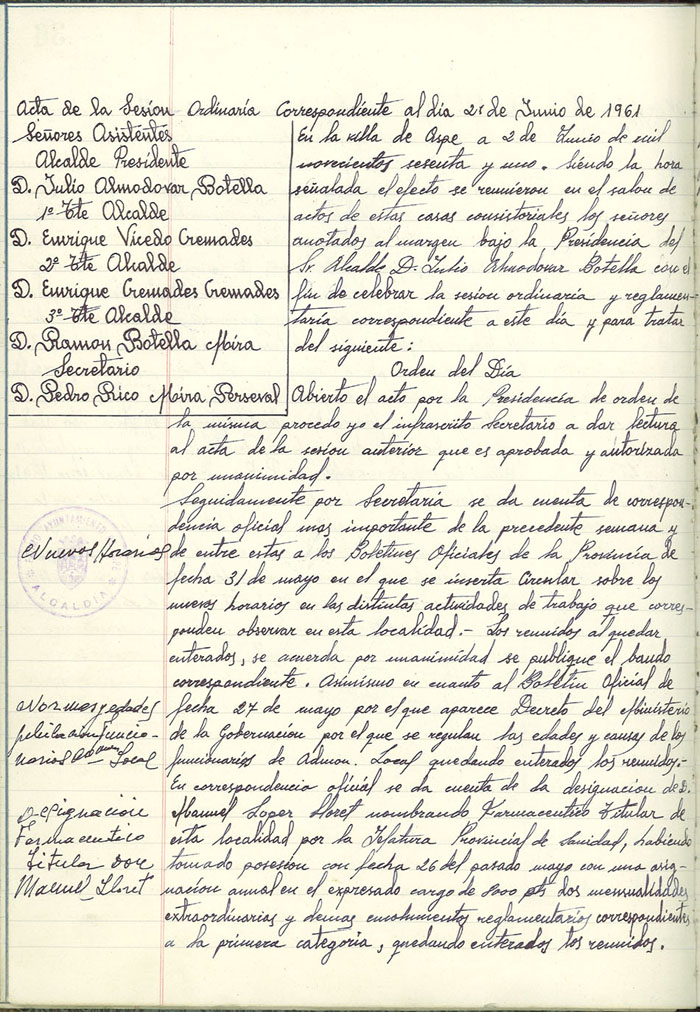 Acta de la Sesion Ordinaria Correspondiente al día 2 de Junio de 1961
Señores Asistentes
Alcalde Presidente
D. Julio Almodovar Botella
1º Tte Alcalde
D. Enrique Vicedo Cremades
2º Tte Alcalde
D. Enrique Cremades Cremades
3º Tte Alcalde
D. Ramon Botella Mira
Secretario
D. Pedro Rico Mira Perseval
En la villa de Aspe a 2 de Junio de mil
novecientos sesenta y uno. Siendo la hora
señalada el efecto se reunieron en el salon de
actos de estas casas consistoriales los señores
anotados al margen bajo la Presidencia del
Sr. Alcalde D. Julio Almodovar Botella con el
fin de celebrar la sesion ordinaria y reglamen-
taría correspondiente a este día y para tratar
del siguiente:
Orden del Día
Abierto el acto por la Presidencia de orden de
la misma procedo yo el infrascrito Secretario a dar lectura
al acta de la sesion anterior que es aprobada y autorizada
por unanimidad.
Seguidamente por Secretaría se da cuenta de correspon-
dencia oficial mas importante de la precedente semana y
Nuevos Horarios
de entre estas a los Boletines Oficiales de la Provincia de
fecha 31 de mayo en el que se inserta Circular sobre los
nuevos horarios en las distintas actividades de trabajo que corres-
ponden observar en esta localidad.- Los reunidos al quedar
enterados, se acuerda por unanimidad se publique el bando
correspondiente. Asimismo en cuanto al Boletin Oficial de
Normas y edades
jubilacion funcio-
narios Admon Local
fecha 27 de mayo por el que aparece Decreto del Ministerio
de la Gobernacion por el que se regulan las edades y causas de los
funcionarios de Admon. Local quedando enterados los reunidos.-
En correspondencia oficial se da cuenta de la designacion de D.
Designacion
Farmaceutico
Titular Don
Manuel Lloret
Manuel Lopez Lloret nombrando Farmaceutico Titular de
esta localidad por la Jefatura Provincial de Sanidad, habiendo
tomado posesion con fecha 26 del pasado mayo con una asig-
nacion annal en el expresado cargo de pts dos mensualidades
extraordinarias y demas emolumentos reglamentarios correspondientes
a la primera categoria, quedando enterados los reunidos.
AYUNTAMIENTO
ALCALDIA